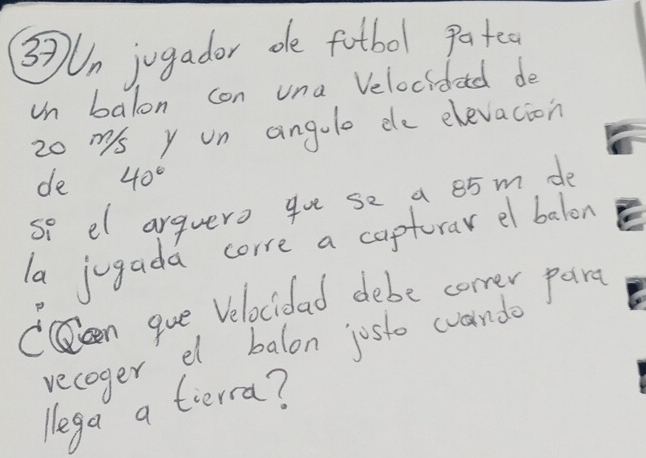 37) Un jugador de futbol patea
un balon con una Velocidad de
20 m/s y un angulo de elevacion
de 40°
si el arquero que se a 85 m de
la jugada corre a capturar el balon
¿Con que Velocidad debe correr para
recoger el balon justo cuando
llega a tierra?